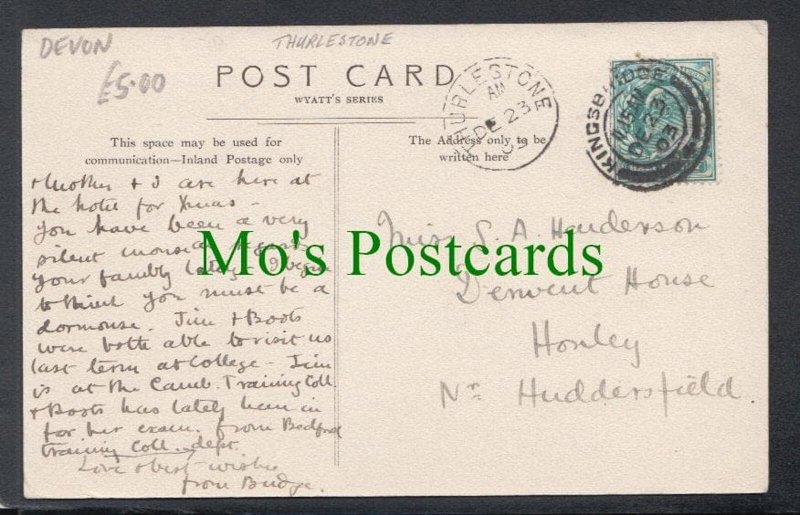 DEVON
THURLESTONE
£5.00
POST CARD
WYATT'S SERIES
THURLESTONE
AM
DE 23
03
KINGSBRIDGE
11.15 AM
DE 23
03
This space may be used for
communication—Inland Postage only
The Address only to be
written here
Mother & I are here at
the hotel for Xmas -
You have been a very
silent
your family lately. I begin
to think you must be a
dormouse. Jim & Boots
were both able to visit us
last term at College - Jim
is at the Camb. Training Coll.
& Boots has lately been in
for her exam. from Bedford
training Coll. dept.
Love & best wishes
from Budge.
Miss S. A. Henderson
Derwent House
Honley
Nr Huddersfield
Mo's Postcards